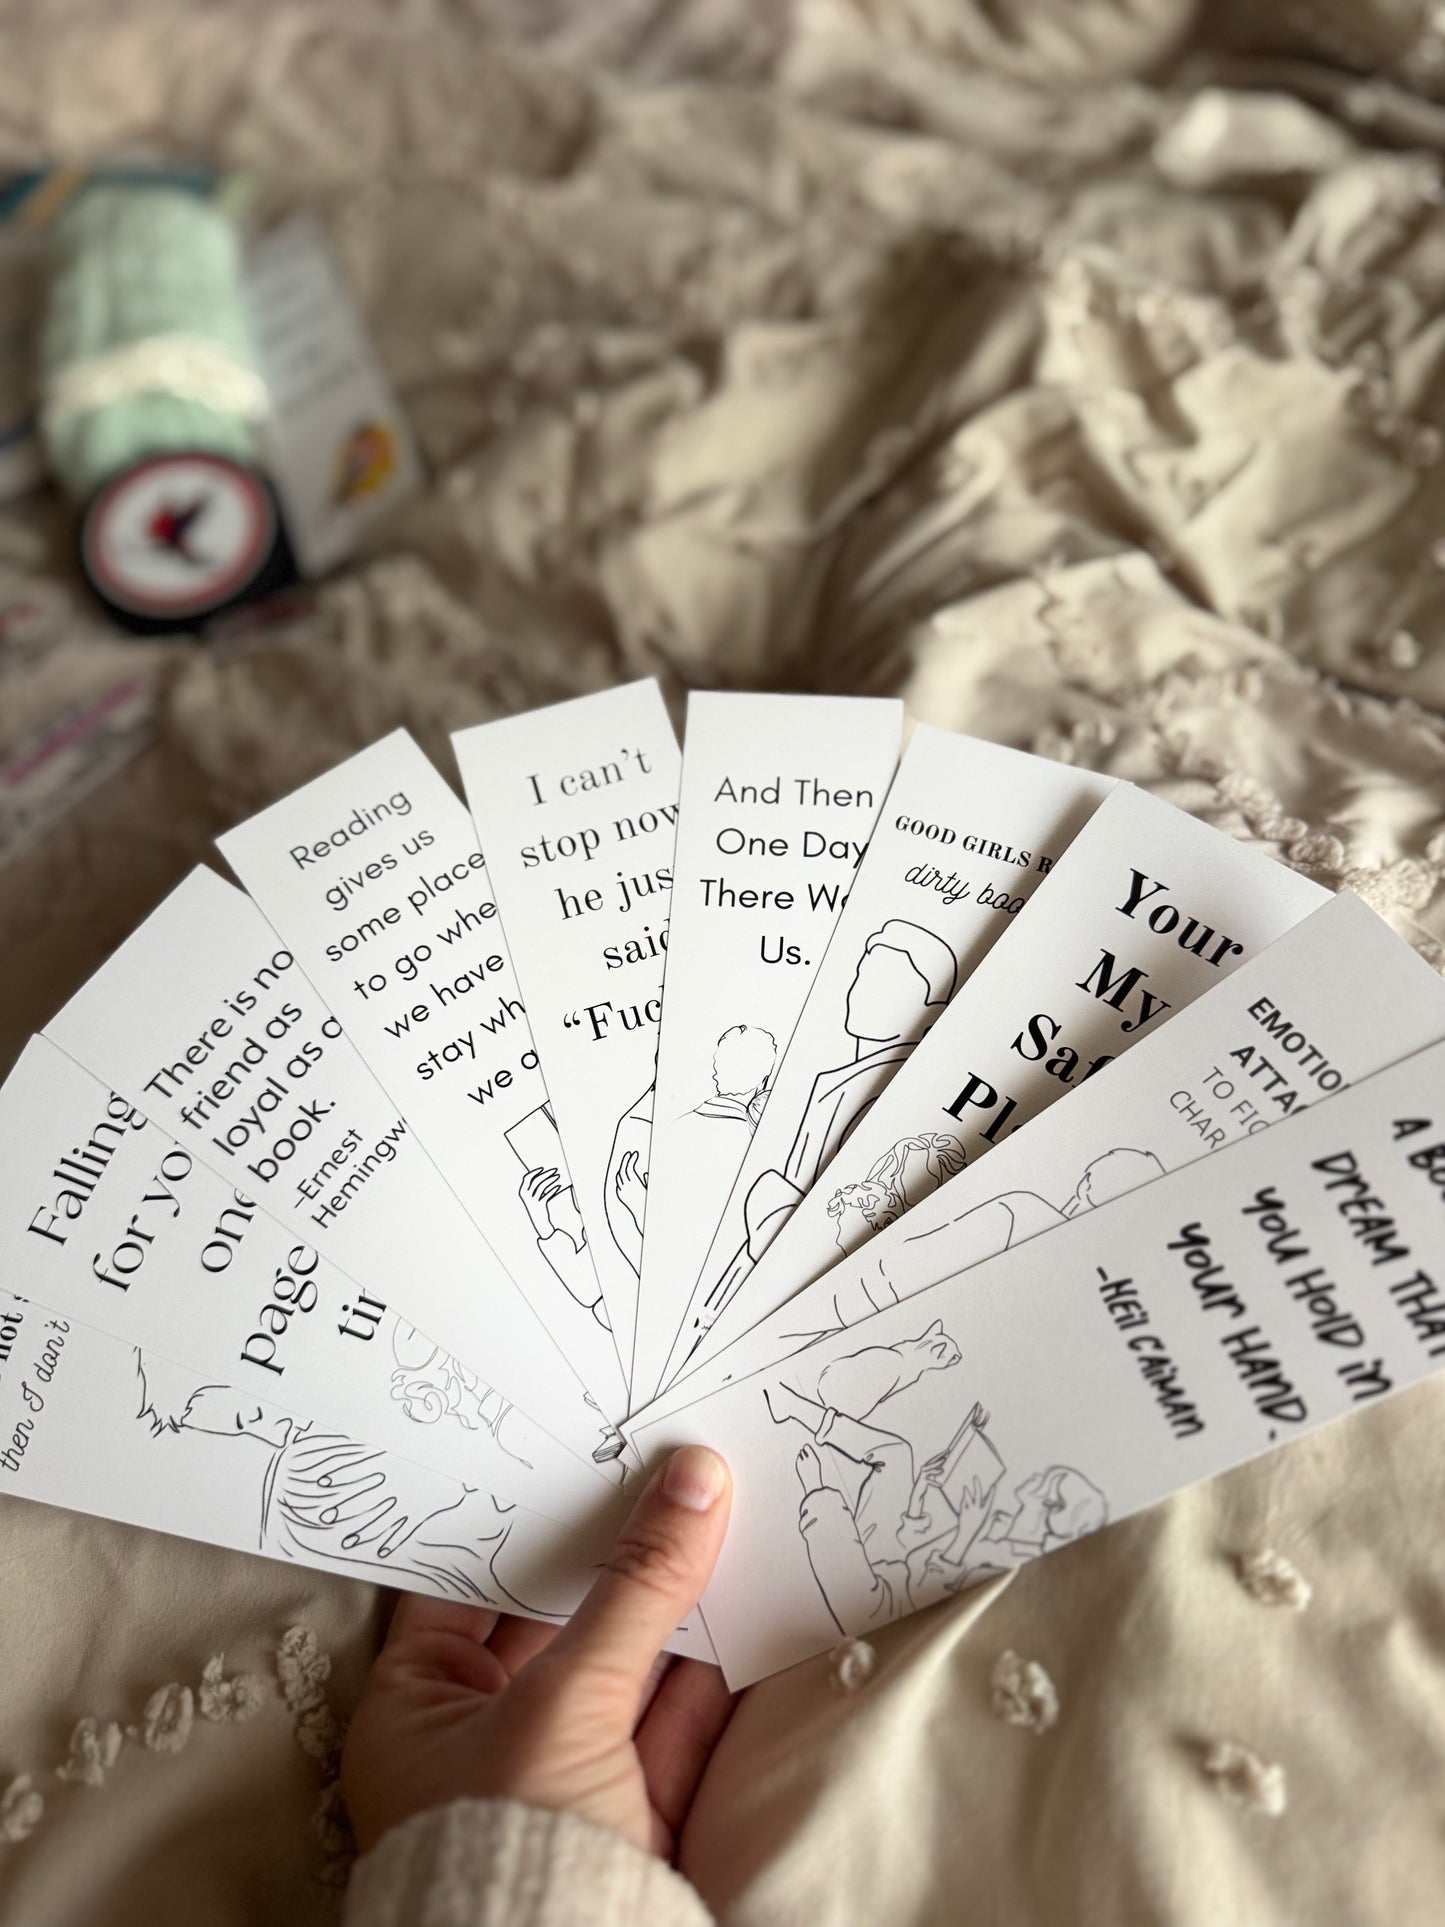 not
then I don't
Falling
for you
one
page
tim
There is no
friend as
loyal as a
book.
-Ernest
Hemingw
Reading
gives us
some place
to go whe
we have
stay wh
we a
I can't
stop now
he jus
said
“Fuc
And Then
One Day
There Wa
Us.
GOOD GIRLS R
dirty boo
Your
My
Saf
Pla
EMOTION
ATTA
TO FIC
CHAR
A BOO
DREAM THAT
YOU HOLD iN
YOUR HAND-
-NEIL GAIMAN